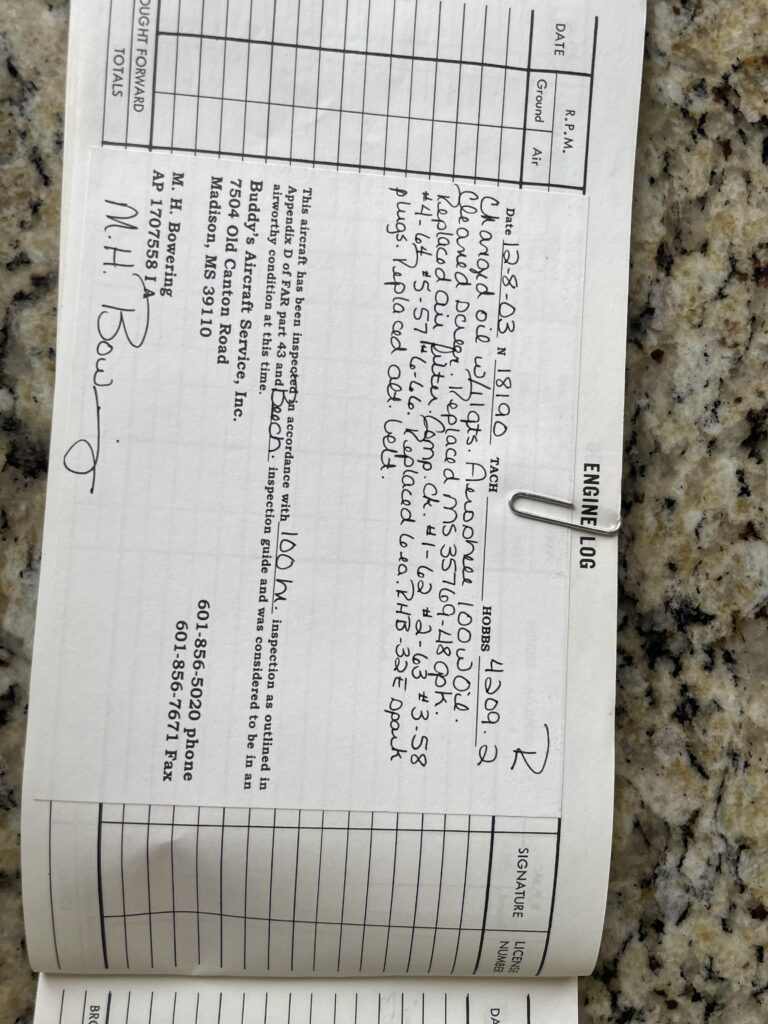 ENGINE LOG
DATE
R.P.M.
Ground Air
R
Date 12-8-03 N 18190 TACH HOBBS 4209.2
Changed oil w/11 qts. Aeroshell 100W oil.
Cleaned screen. Replaced MS 35769-48 gsk.
Replaced air filter. Comp. ck. #1-62 #2-63 #3-58
#4-64 #5-57 #6-66. Replaced 6 ea. RHB-32E spark
plugs. Replaced alt. belt.
This aircraft has been inspected in accordance with 100 hr. inspection as outlined in
Appendix D of FAR part 43 and Beech. inspection guide and was considered to be in an
airworthy condition at this time.
Buddy's Aircraft Service, Inc.
7504 Old Canton Road
Madison, MS 39110
601-856-5020 phone
601-856-7671 Fax
M. H. Bowering
AP 1707558 IA
M.H. Bowering
OUGHT FORWARD
TOTALS
SIGNATURE
LICENSE
NUMBER
DA
BRO